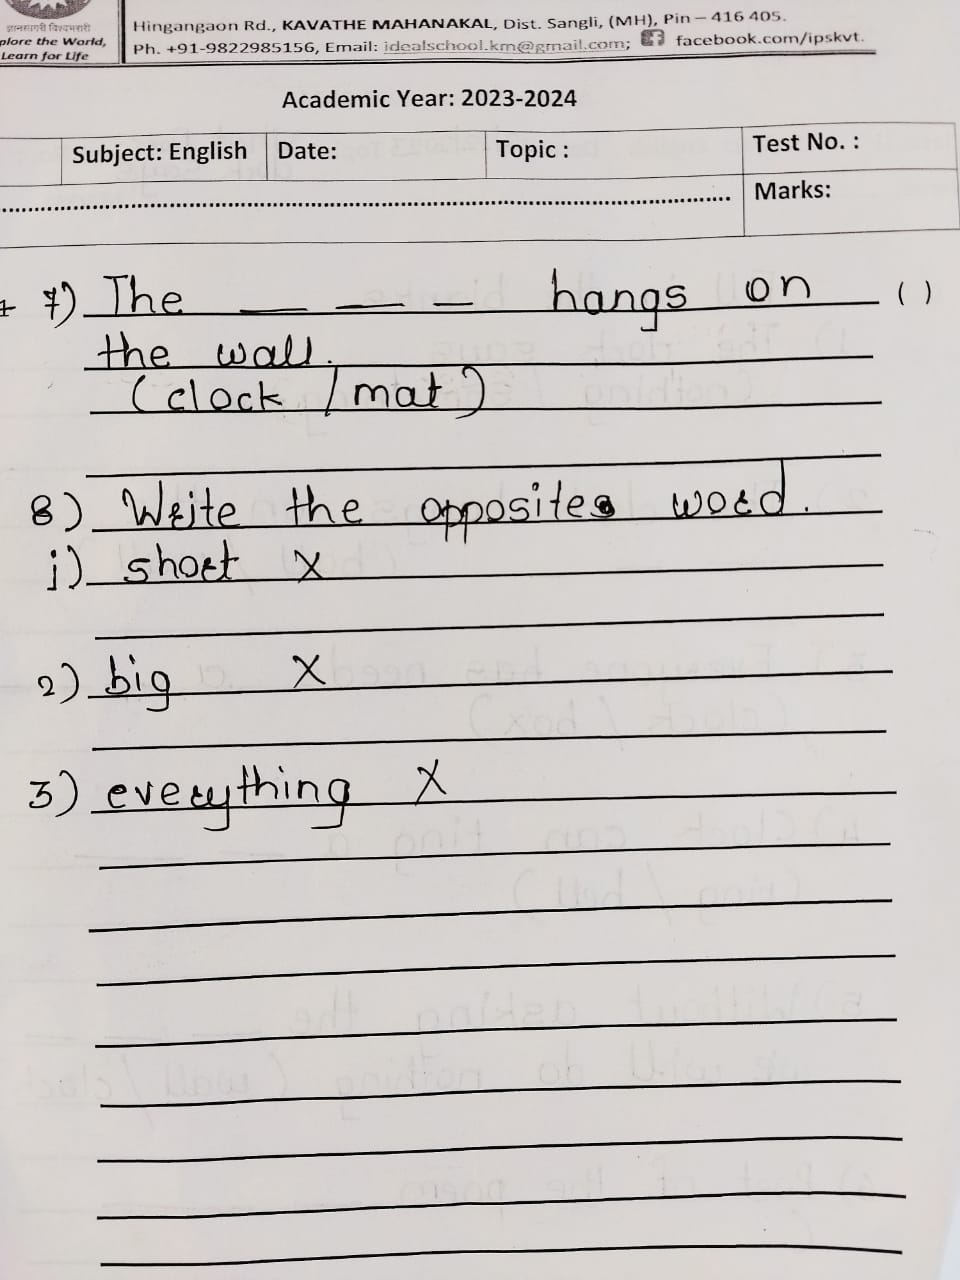 ज्ञानसागरी विश्वभरारी
plore the World,
Learn for Life
Hingangaon Rd., KAVATHE MAHANAKAL, Dist. Sangli, (MH), Pin – 416 405.
Ph. +91-9822985156, Email: idealschool.km@gmail.com; facebook.com/ipskvt.
Academic Year: 2023-2024
Subject: English Date: Topic : Test No. :
Marks:
7) The _ _ _ hangs on ( )
the wall.
(clock / mat)
8) Write the opposites word.
i) short X
2) big X
3) everything X